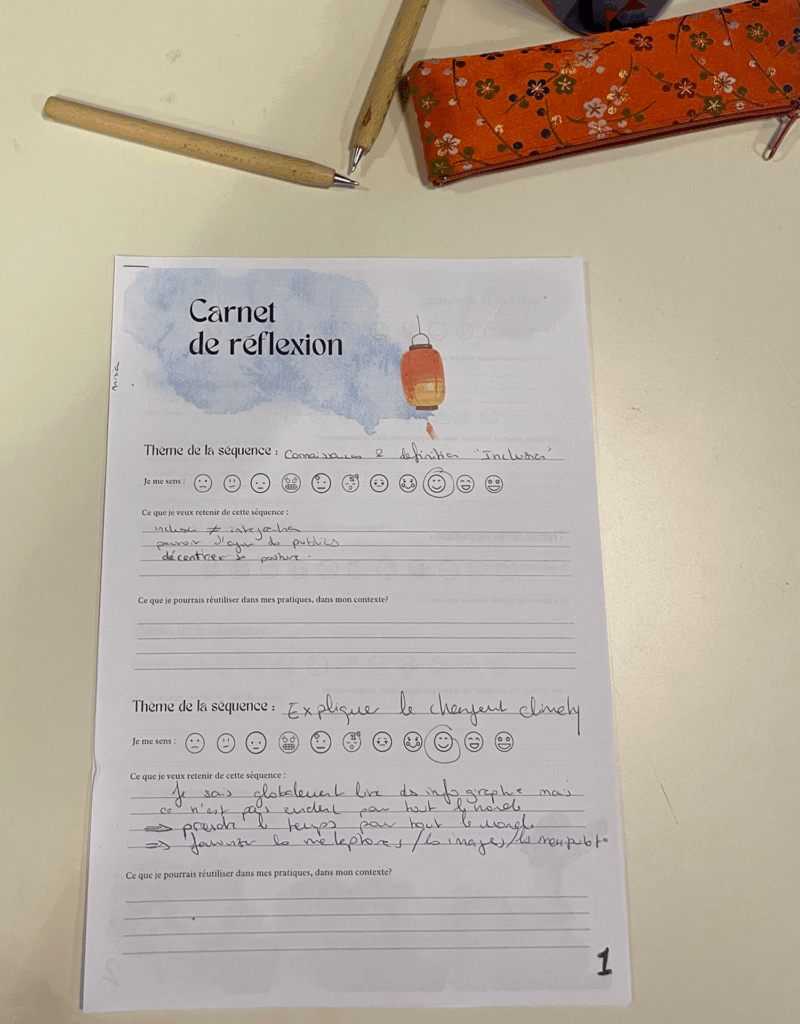 Carnet
de réflexion
Thème de la séquence : Connaissances & definition "Inclusion"
Je me sens :
Ce que je veux retenir de cette séquence :
inclusion ≠ intégration
pouvoir d'agir des publics
décentrer sa posture.
Ce que je pourrais réutiliser dans mes pratiques, dans mon contexte?
Thème de la séquence : Expliquer le changement climatiq
Je me sens :
Ce que je veux retenir de cette séquence :
Je sais globalement lire des infographie mais
ce n'est pas evident pour tout le monde
⇒ prendre le temps pour tout le monde
⇒ favoriser les métaphores / les images / les
Ce que je pourrais réutiliser dans mes pratiques, dans mon contexte?
1